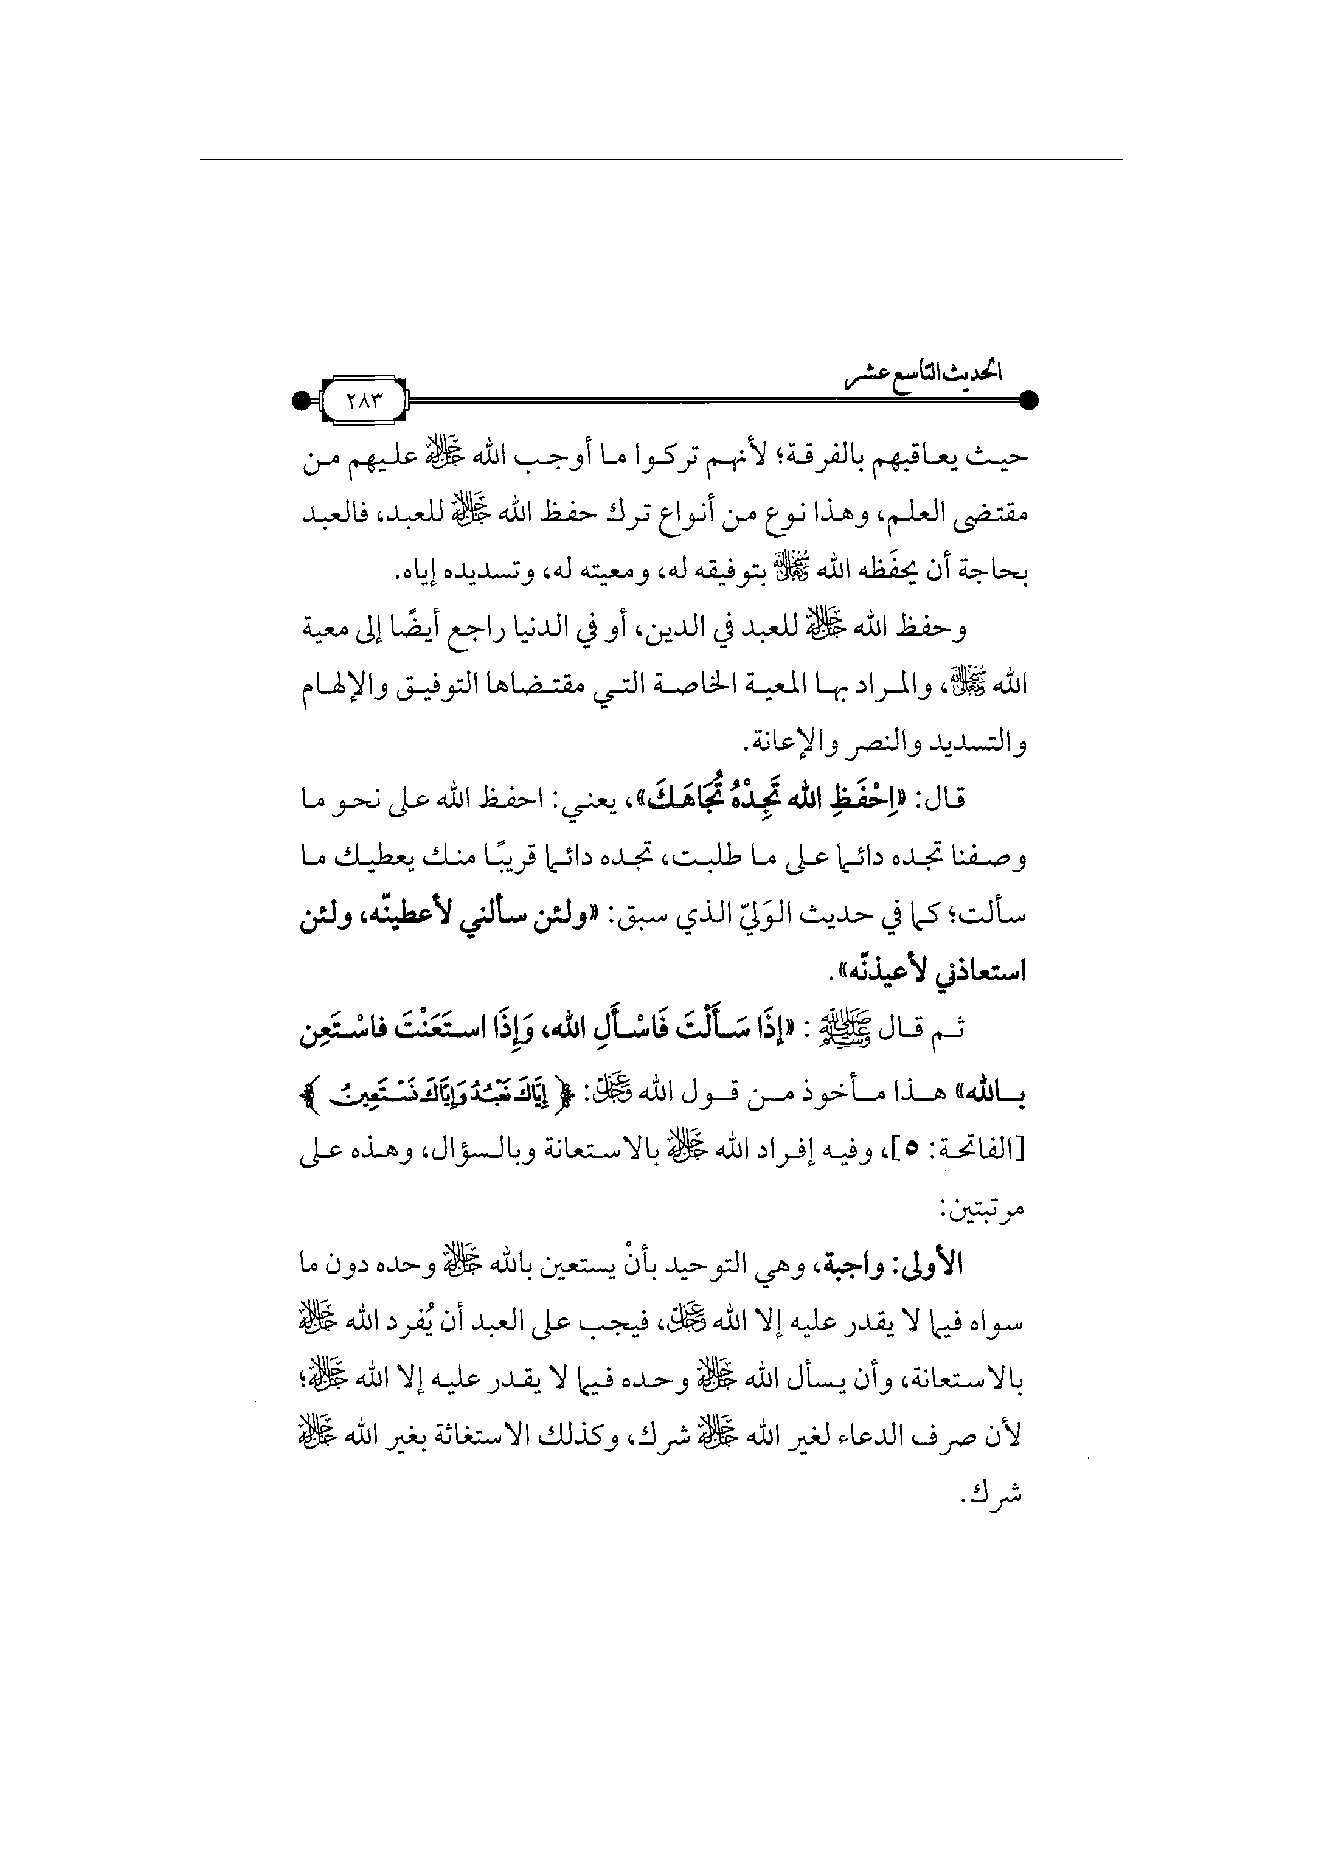 الحديث التاسع عشر
٢٨٣
حيث يعاقبهم بالفرقة؛ لأنهم تركوا ما أوجب الله ﷻ عليهم من
مقتضى العلم، وهذا نوع من أنواع ترك حفظ الله ﷻ للعبد، فالعبد
بحاجة أن يحفَظه الله بتوفيقه له، ومعيته له، وتسديده إياه.
وحفظ الله ﷻ للعبد في الدين، أو في الدنيا راجع أيضًا إلى معية
الله ، والمراد بها المعية الخاصة التي مقتضاها التوفيق والإلهام
والتسديد والنصر والإعانة.
قال: «اِحْفَظِ الله تَجِدْهُ تُجَاهَكَ»، يعني: احفظ الله على نحو ما
وصفنا تجده دائما على ما طلبت، تجده دائما قريبًا منك يعطيك ما
سألت؛ كما في حديث الوَليّ الذي سبق: «ولئن سألني لأعطينّه، ولئن
استعاذني لأعيذنّه».
ثم قال ﷺ : «إذَا سَأَلْتَ فَاسْأَلِ الله، وَإِذَا استَعَنْتَ فاسْتَعِن
بالله» هذا مأخوذ من قول الله عز وجل: ﴿ إِيَّاكَ نَعْبُدُ وَإِيَّاكَ نَسْتَعِينُ ﴾
[الفاتحة: ٥]، وفيه إفراد الله ﷻ بالاستعانة وبالسؤال، وهذه على
مرتبتين:
الأولى: واجبة، وهي التوحيد بأنْ يستعين بالله ﷻ وحده دون ما
سواه فيما لا يقدر عليه إلا الله عز وجل، فيجب على العبد أن يُفرد الله ﷻ
بالاستعانة، وأن يسأل الله ﷻ وحده فيما لا يقدر عليه إلا الله ﷻ؛
لأن صرف الدعاء لغير الله ﷻ شرك، وكذلك الاستغاثة بغير الله ﷻ
شرك.